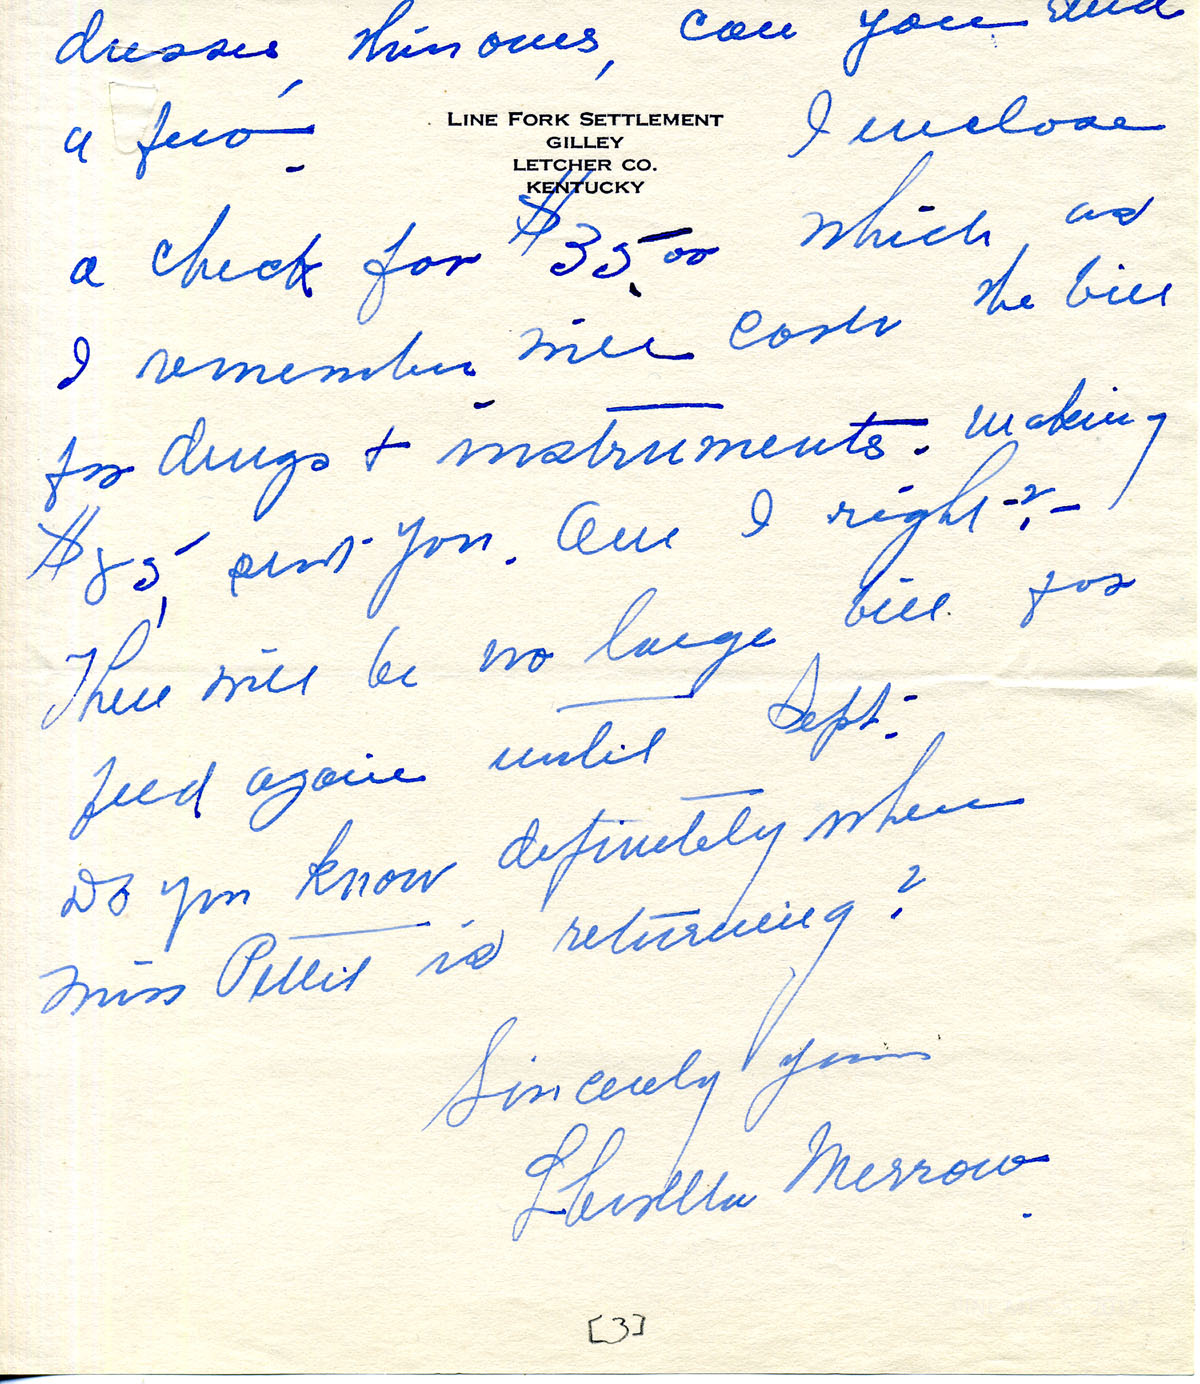 dresses, thin ones, can you send
a few. I inclose
LINE FORK SETTLEMENT
GILLEY
LETCHER CO.
KENTUCKY
a check for $35.00 which, as
I remember will cover the bill
for drugs + instruments. making
$85, sent you. Am I right?-
There will be no large bill for
feed again until Sept.
Do you know definitely when
Miss Pettit is returning?
Sincerely yours
Merrow.
[3]